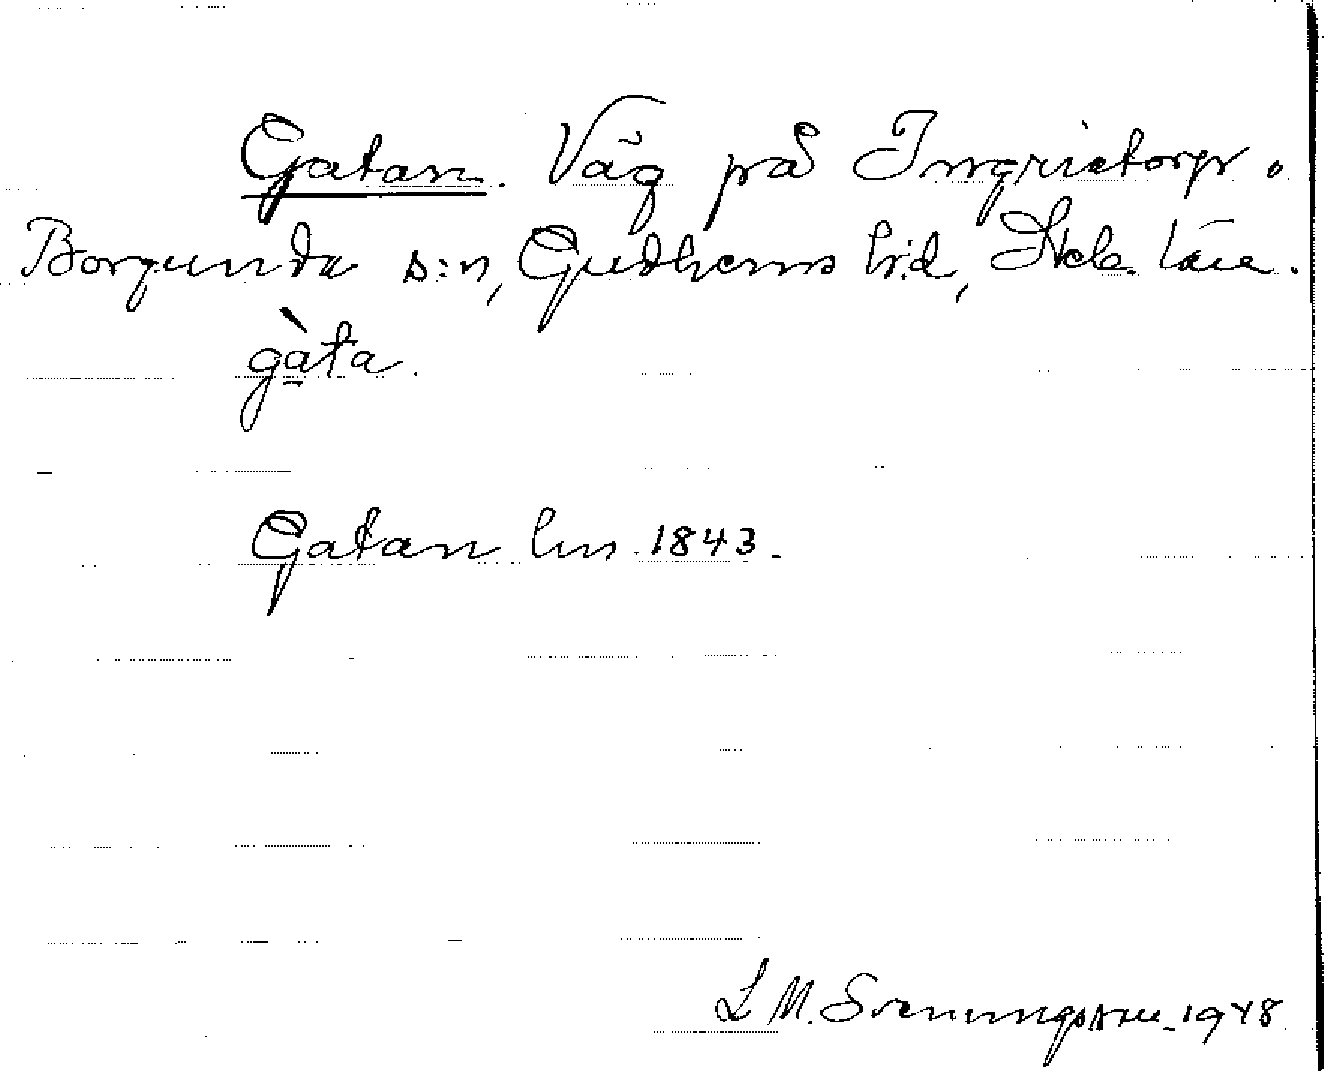 Gatan. Väg på Ingrietorp.
Borgunda s:n, Gudhems h:d, Skb. län.
gàta.
Gatan lm 1843.
L M. Svenungsson 1948